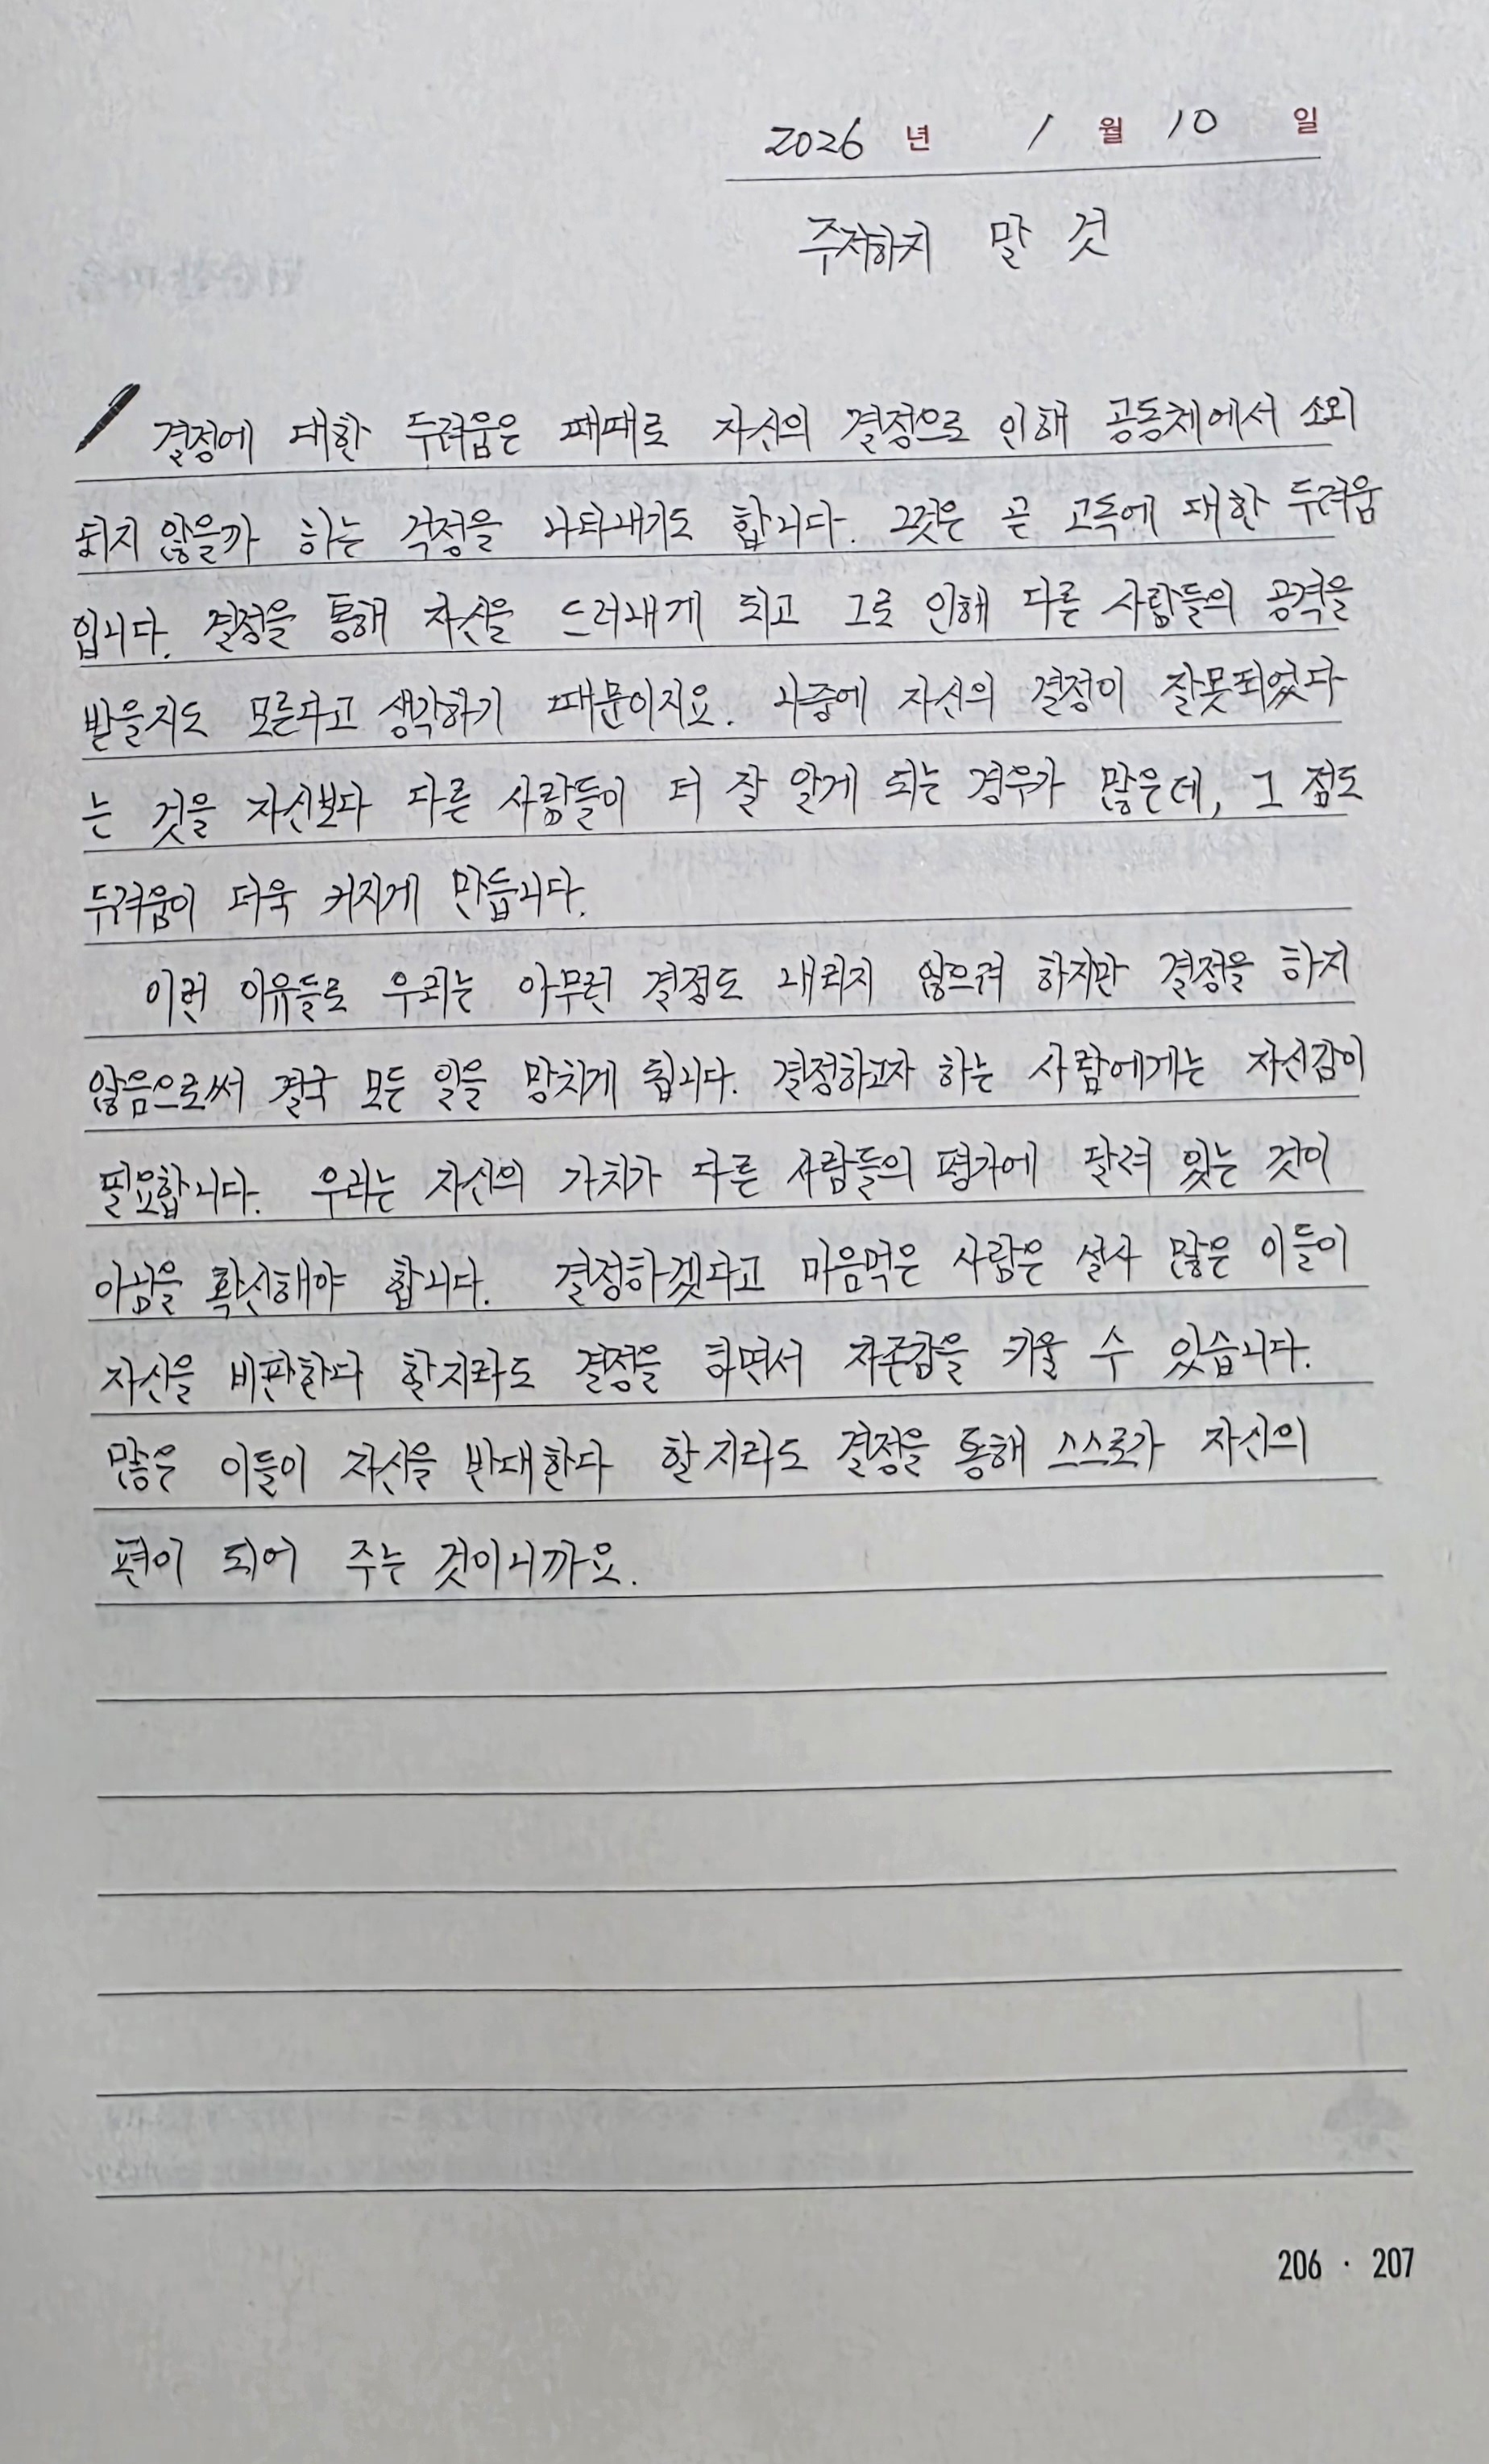 2026 년 1 월 10 일
주저하지 말 것
결정에 대한 두려움은 때때로 자신의 결정으로 인해 공동체에서 소외
되지 않을까 하는 걱정을 나타내기도 합니다. 그것은 곧 고독에 대한 두려움
입니다. 결정을 통해 자신을 드러내게 되고 그로 인해 다른 사람들의 공격을
받을지도 모른다고 생각하기 때문이지요. 나중에 자신의 결정이 잘못되었다
는 것을 자신보다 다른 사람들이 더 잘 알게 되는 경우가 많은데, 그 점도
두려움이 더욱 커지게 만듭니다.
이런 이유들로 우리는 아무런 결정도 내리지 않으려 하지만 결정을 하지
않음으로써 결국 모든 일을 망치게 됩니다. 결정하고자 하는 사람에게는 자신감이
필요합니다. 우리는 자신의 가치가 다른 사람들의 평가에 달려 있는 것이
아님을 확신해야 합니다. 결정하겠다고 마음먹은 사람은 설사 많은 이들이
자신을 비판한다 할지라도 결정을 하면서 자존감을 키울 수 있습니다.
많은 이들이 자신을 반대한다 할지라도 결정을 통해 스스로가 자신의
편이 되어 주는 것이니까요.
206 · 207